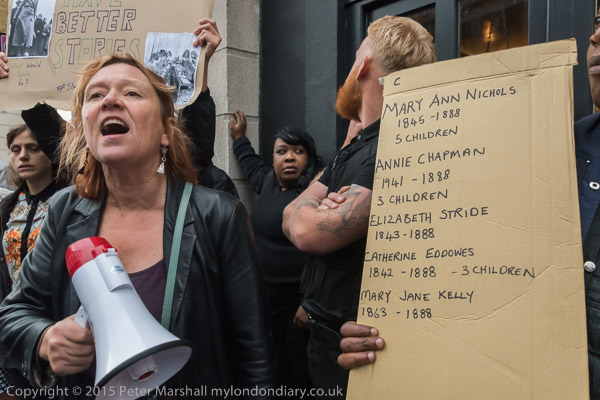 HAVE
BETTER
STORIES
C
MARY ANN NICHOLS
1845-1888
5 CHILDREN
ANNIE CHAPMAN
1941-1888
3 CHILDREN
ELIZABETH STRIDE
1843-1888
CATHERINE EDDOWES
1842-1888 - 3 CHILDREN
MARY JANE KELLY
1863-1888
Copyright © 2015 Peter Marshall mylondondiary.co.uk